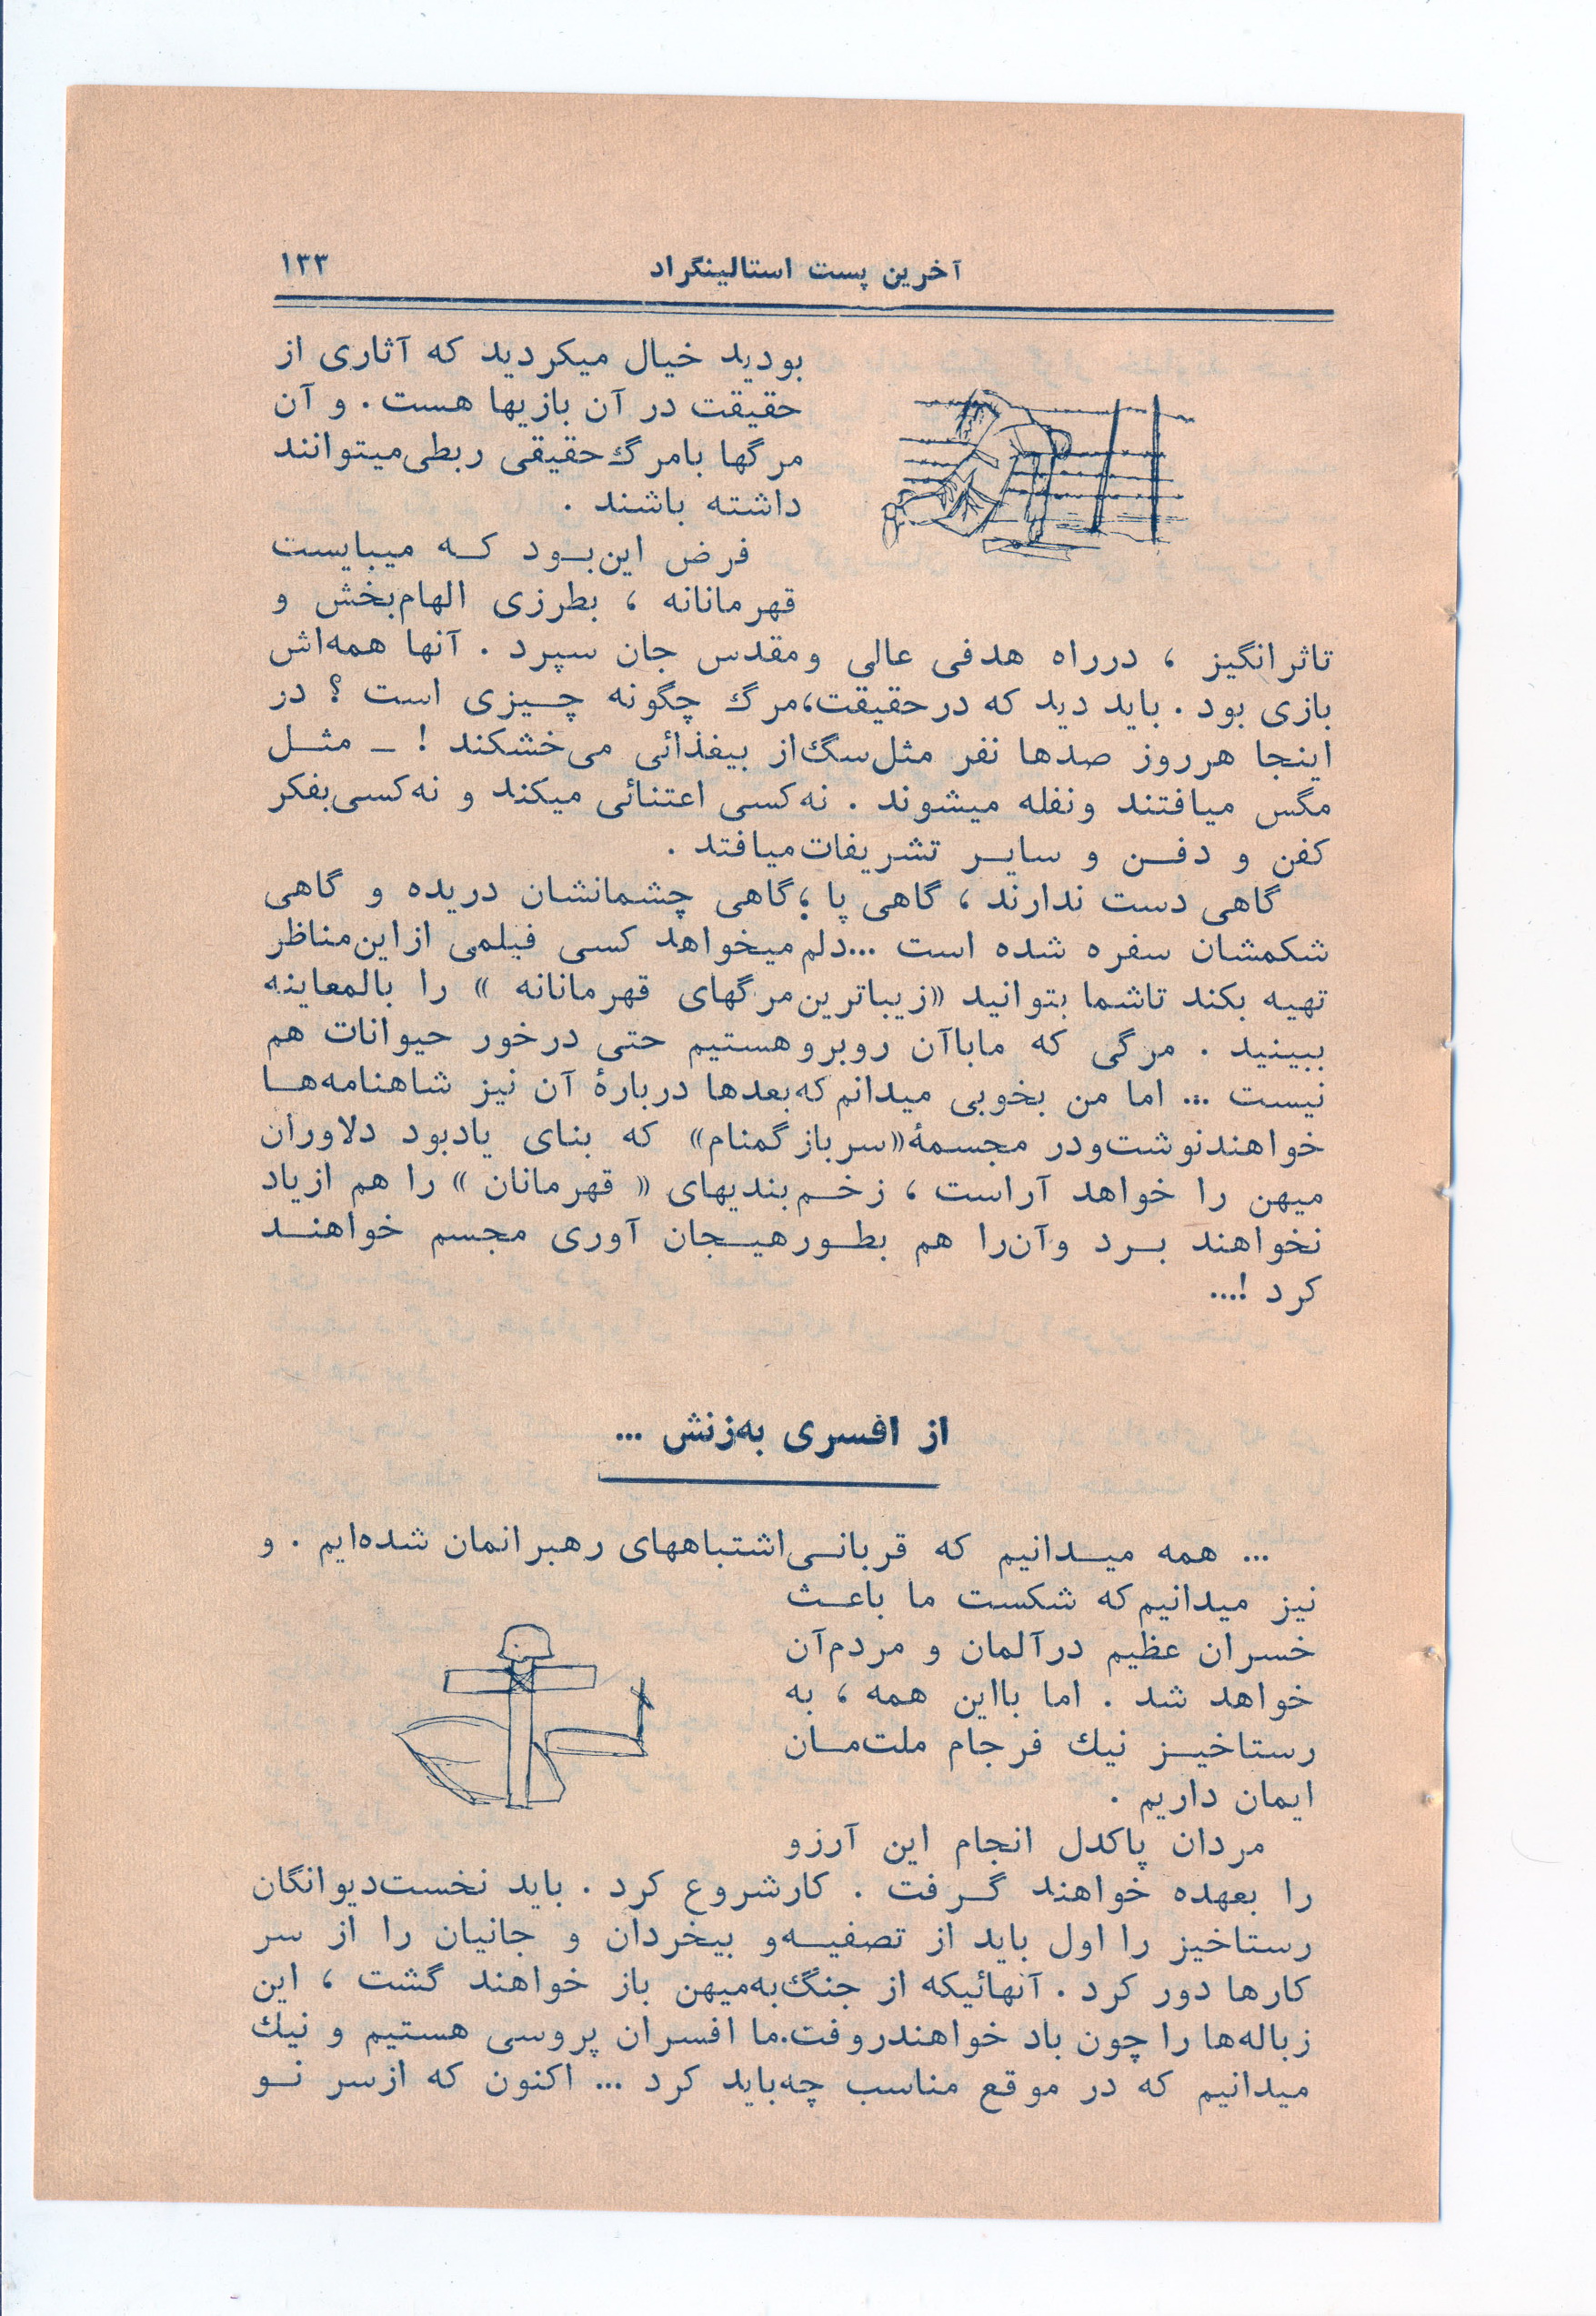 آخرین پست استالینگراد
۱۳۳
بودید خیال میکردید که آثاری از
حقیقت در آن بازیها هست . و آن
مرگها بامرگ حقیقی ربطی میتوانند
داشته باشند .
فرض این بود که میبایست
قهرمانانه ، بطرزی الهام بخش و
تاثرانگیز ، درراه هدفی عالی و مقدس جان سپرد . آنها همه‌اش
بازی بود . باید دید که در حقیقت، مرگ چگونه چیزی است ؟ در
اینجا هرروز صدها نفر مثل سگ از بیغذائی می‌خشکند ! ـ مثل
مگس میافتند و نفله میشوند . نه کسی اعتنائی میکند و نه کسی بفکر
کفن و دفن و سایر تشریفات میافتد .
گاهی دست ندارند ، گاهی پا ؛ گاهی چشمانشان دریده و گاهی
شکمشان سفره شده است ... دلم میخواهد کسی فیلمی از این مناظر
تهیه بکند تاشما بتوانید «زیباترین مرگهای قهرمانانه » را بالمعاینه
ببینید . مرگی که ماباآن روبرو هستیم حتی درخور حیوانات هم
نیست ... اما من بخوبی میدانم که بعدها دربارهٔ آن نیز شاهنامه‌ها
خواهند نوشت و در مجسمهٔ «سرباز گمنام» که بنای یادبود دلاوران
میهن را خواهد آراست ، زخم بندیهای « قهرمانان » را هم از یاد
نخواهند برد و آن را هم بطور هیجان آوری مجسم خواهند
کرد !...
از افسری به زنش ...
... همه میدانیم که قربانی اشتباههای رهبرانمان شده‌ایم . و
نیز میدانیم که شکست ما باعث
خسران عظیم درآلمان و مردم آن
خواهد شد . اما بااین همه ، به
رستاخیز نیک فرجام ملت‌مان
ایمان داریم .
مردان پاکدل انجام این آرزو
را بعهده خواهند گرفت . کار شروع کرد . باید نخست دیوانگان
رستاخیز را اول باید از تصفیه و بیخردان و جانیان را از سر
کارها دور کرد . آنهائیکه از جنگ به میهن باز خواهند گشت ، این
زباله‌ها را چون باد خواهند روفت. ما افسران پروسی هستیم و نیک
میدانیم که در موقع مناسب چه باید کرد ... اکنون که از سر نو